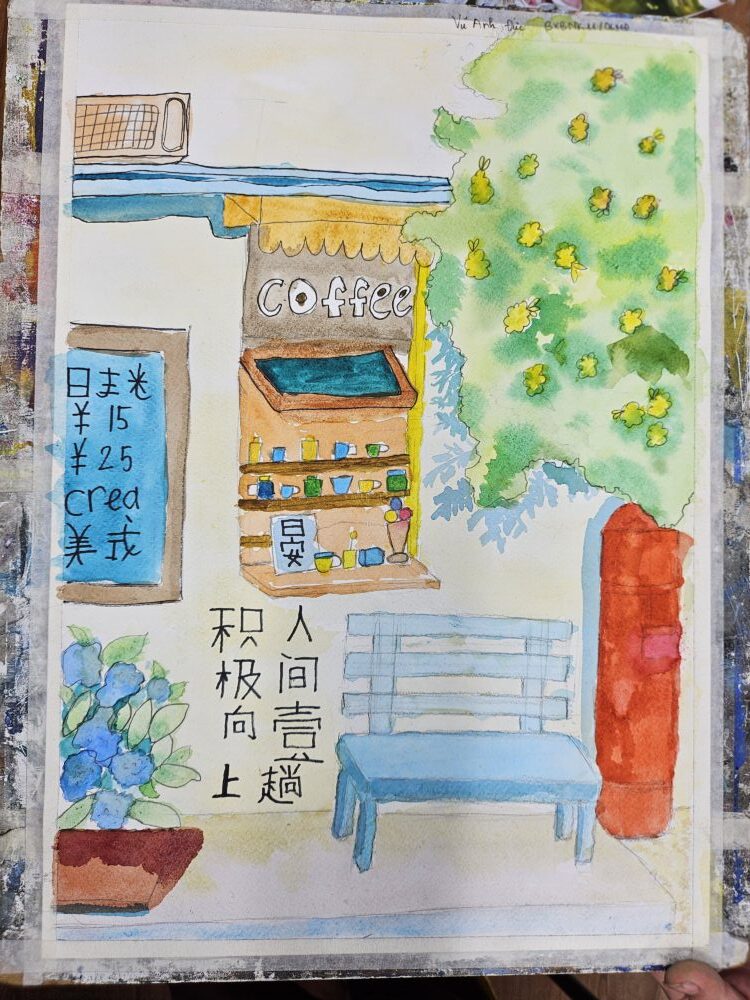 Vũ Anh Đức
coffee
¥ 15
¥ 25
crea
日安
人间壹趟
积极向上